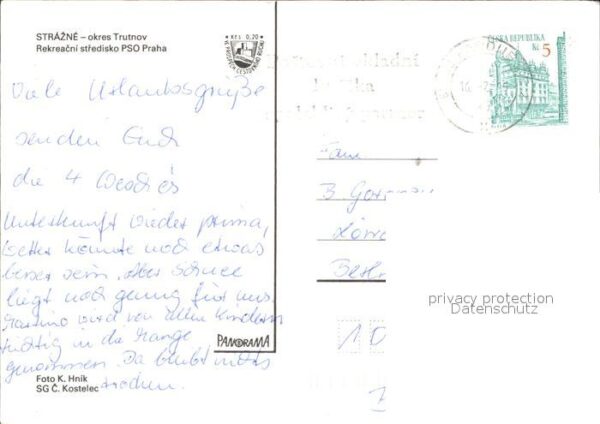 STRÁŽNÉ – okres Trutnov
Rekreační středisko PSO Praha
Kčs 0,20
VE PROSPĚCH CESTOVNÍHO RUCHU
ČESKÁ REPUBLIKA
Kč 5
Viele Urlaubsgrüße
senden Euch
die 4
Unterkunft wieder prima,
Wetter könnte noch etwas
besser sein. Aber Schnee
liegt noch genug für uns.
wird von allen Kindern
tüchtig in die Mange
genommen. Da bleibt nichts
trocken.
Fam
B. Go
Berl
10
privacy protection
Datenschutz
PANORAMA
Foto K. Hník
SG Č. Kostelec